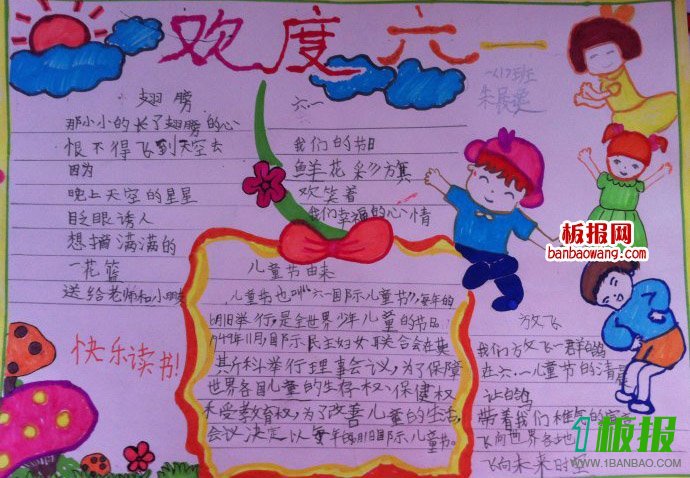 欢度六一
一(17)班
翅膀
那小小的长了翅膀的心
恨不得飞到天空去
因为
晚上天空的星星
眨眼诱人
想摘满满的
一花篮
送给老师和小朋
快乐读书!
六一
我们的节日
鲜花彩旗
欢笑着
我们幸福的心情
儿童节由来
儿童节也叫“六一国际儿童节”,每年的
6月1日举行,是全世界少年儿童的节日
1949年11月国际民主妇女联合会在莫
斯科举行理事会议,为了保障
世界各国儿童的生存权、保健权
和受教育权,为了改善儿童的生活,
会议决定以每年的6月1日国际儿童节。
放飞
我们放飞一群白鸽
在六一儿童节的清晨
让白鸽
带着我们
飞向世界各地
飞向未来时
板报网
banbaowang.com
1板报
WWW.1BANBAO.COM